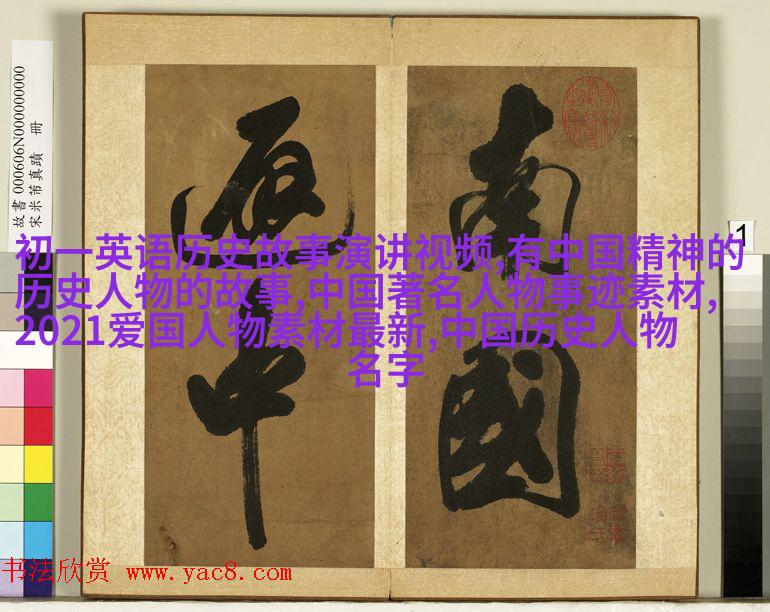 故書 000606N000000000
宋米芾真蹟 冊
1
南國
初一英语历史故事演讲视频,有中国精神的
历史人物的故事,中国著名人物事迹素材,
2021爱国人物素材最新,中国历史人物
名字
书法欣赏 www.yac8.com